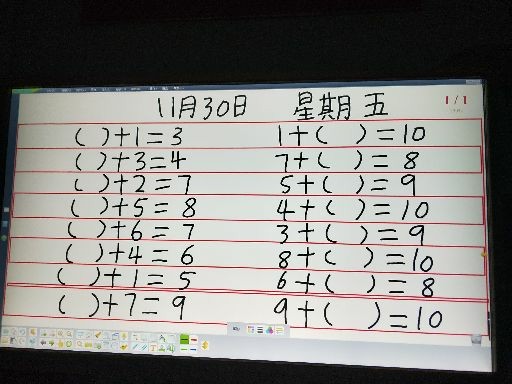 11月30日 星期五
1/1
( )+1=3 1+( )=10
( )+3=4 7+( )=8
( )+2=7 5+( )=9
( )+5=8 4+( )=10
( )+6=7 3+( )=9
( )+4=6 8+( )=10
( )+1=5 6+( )=8
( )+7=9 9+( )=10